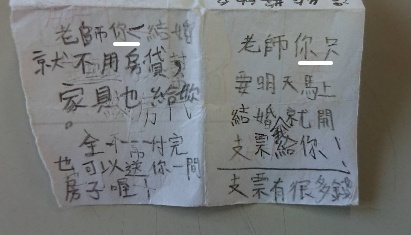 老師你一結婚
就不用房貸
家具也給你
。
全部一付完
也可以送你一間
房子喔！
老師你只
要明天馬上
結婚就開
支票給你！
支票有很多錢